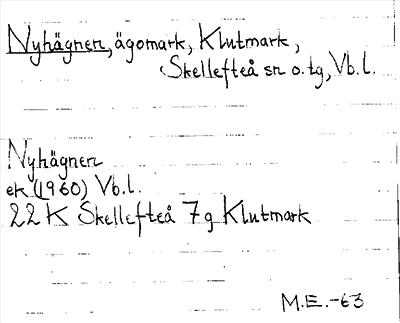 Nyhägnen, ägomark, Klutmark,
Skellefteå sn o. tg, Vb.l.
Nyhägnen
ek (1960) Vb.l.
22 K Skellefteå 7g Klutmark
M.E. -63